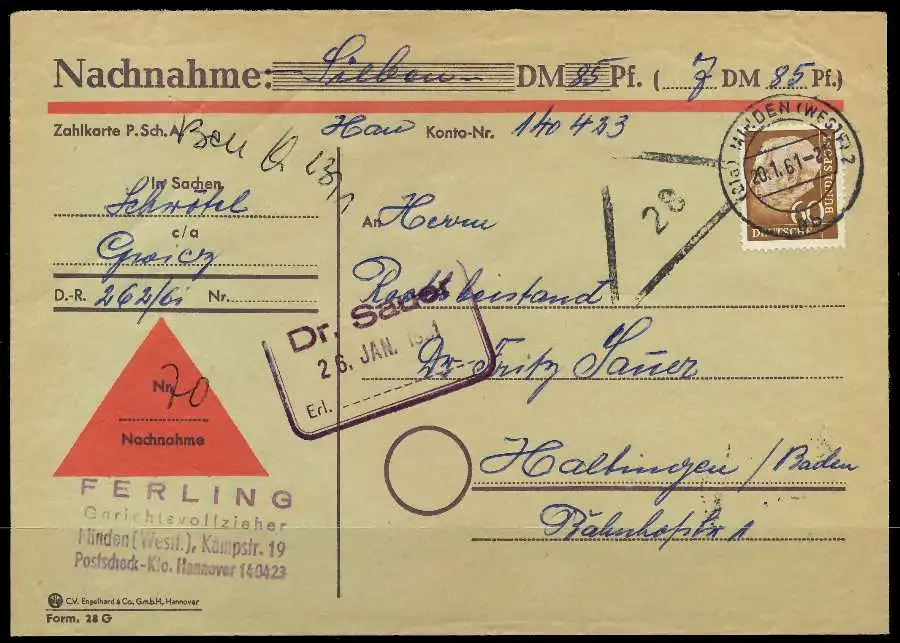 Nachnahme: Sieben DM 85 Pf. ( 7 DM 85 Pf.)
Zahlkarte P.Sch.A. Han Konto-Nr. 140 423
MINDEN (WESTF) 2
20.1.61
DEUTSCHE BUNDESPOST
28
In Sachen
Schrötel
c/a
D.-R. 262/61 Nr.
An Herrn
Rechtsbeistand
Dr. Fritz Sauer
Haltingen / Baden
Bahnhofstr 1
Dr. Sauer
26. JAN. 1961
Erl.
Nr. 70
Nachnahme
FERLING
Gerichtsvollzieher
Minden (Westf.), Kampstr. 19
Postscheck-Kto. Hannover 140423
C.V. Engelhard & Co. G.m.b.H., Hannover
Form. 28 G